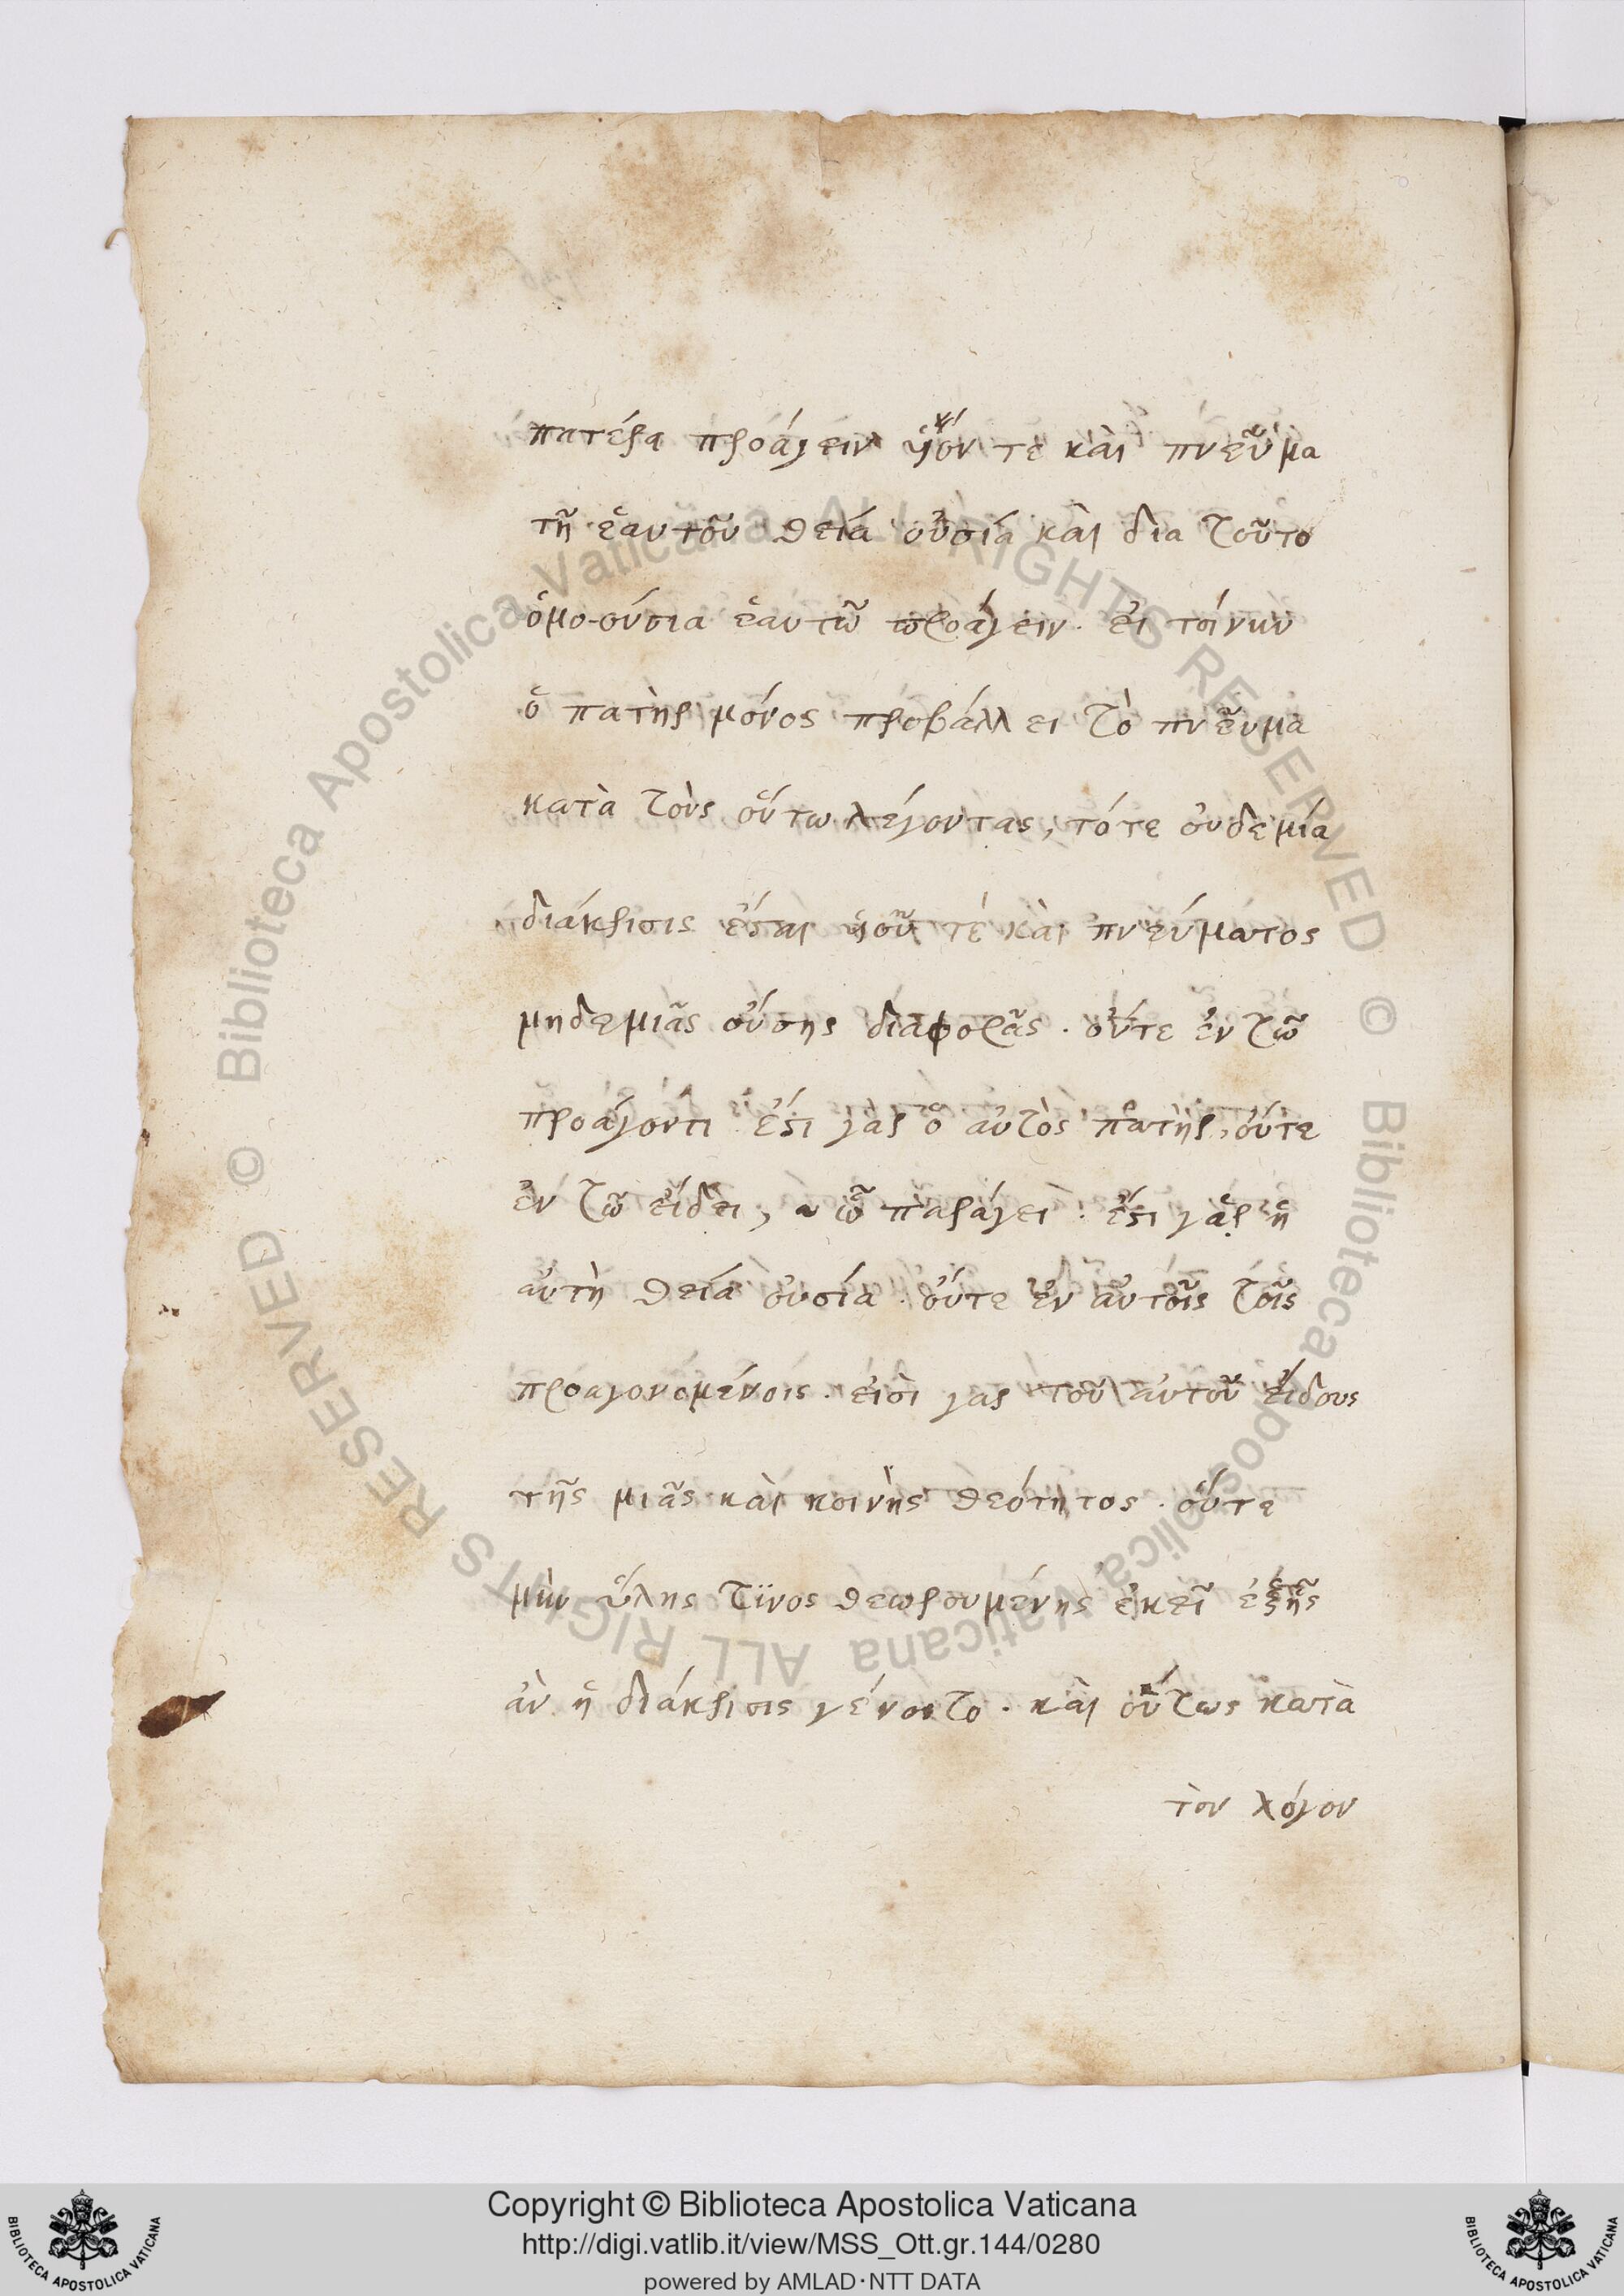 πατέρα προάγειν ὑιόν τε καὶ πνεῦμα
τῆ ἑαυτοῦ θεία οὐσία καὶ δια τοῦτο
ὁμοούσια ἑαυτῶ προάγειν. ἐι τοίνυν
ὁ πατὴρ μόνος προβάλλει τὸ πνεῦμα
κατὰ τοὺς οὕτω λέγοντας, τότε ουδεμία
διάκρισις ἔσται ὑιοῦ τέ καὶ πνεύματος
μηδεμιᾶς οὔσης διαφορᾶς. οὔτε ἐν τῶ
προάγοντι ἔστι γὰρ ὁ αὐτὸς πατὴρ, οὔτε
ἐν τῶ εἴδει, ὧ παράγει. ἔστι γὰρ ἡ
αὐτὴ θεία οὐσία. οὔτε ἐν αὐτοῖς τοῖς
προαγονομένοις. εἰσὶ γαρ τοῦ αὐτοῦ εἴδους
τῆς μιᾶς καὶ κοινῆς θεότητος. οὔτε
μὴν ὕλης τϊνος θεωρουμένης ἐκεῖ ἐξῆς
ἀν ἡ διάκρισις γένοιτο. καὶ οὕτως κατὰ
τὸν λόγον
Copyright © Biblioteca Apostolica Vaticana
http://digi.vatlib.it/view/MSS_Ott.gr.144/0280
powered by AMLAD·NTT DATA
BIBLIOTECA APOSTOLICA VATICANA
BIBLIOTECA APOSTOLICA VATICANA
© Biblioteca Apostolica Vaticana ALL RIGHTS RESERVED
© Biblioteca Apostolica Vaticana ALL RIGHTS RESERVED